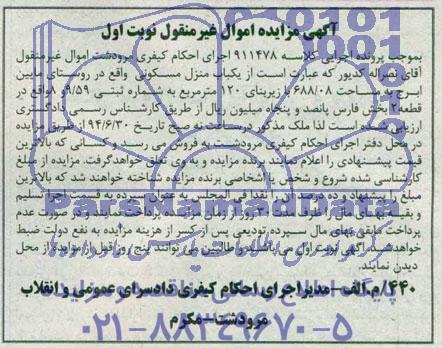 آگهی مزایده اموال غیرمنقول نوبت اول
بموجب پرونده اجرایی کلاسه ۹۱۱۴۷۸ اجرای احکام کیفری مرودشت اموال غیرمنقول
آقای نصراله کدپور که عبارت است از یکباب منزل مسکونی واقع در روستای مابین
ایرج به مساحت ۶۸۸/۰۸ با زیربنای ۱۲۰ مترمربع به شماره ثبتی واقع در
قطعه ۲ بخش فارس پانصد و پنجاه میلیون ریال از طریق کارشناس رسمی دادگستری
ارزیابی شده است لذا ملک مذکور در ساعت نه صبح تاریخ ۹۴/۶/۳۰ از طریق مزایده
در محل دفتر اجرای احکام کیفری مرودشت به فروش می رسد و کسانی که بالاترین
قیمت پیشنهادی را اعلام نمایند برنده مزایده و به وی تعلق خواهد گرفت. مزایده از مبلغ
کارشناسی شده شروع و شخص یا اشخاصی برنده مزایده شناخته خواهند شد که بالاترین
مبلغ را پیشنهاد و ده درصد آن را نقدا فی المجلس به عنوان سپرده به قسمت اجرا تسلیم
و بقیه بهای مال را ظرف مدت ۳۰ روز از زمان مزایده پرداخت نمایند و در صورت عدم
پرداخت مابقی بهای مال سپرده تودیعی پس از کسر از هزینه مزایده به نفع دولت ضبط
خواهد شد آگهی نوبت اول می باشد و طالبین می توانند پنج روز قبل از مزایده از محل
دیدن نمایند.
۴۴۰/م الف - مدیر اجرای احکام کیفری دادسرای عمومی و انقلاب
مرودشت - مکرم
۰۲۱-۸۸۳۴۹۶۷۰-۵